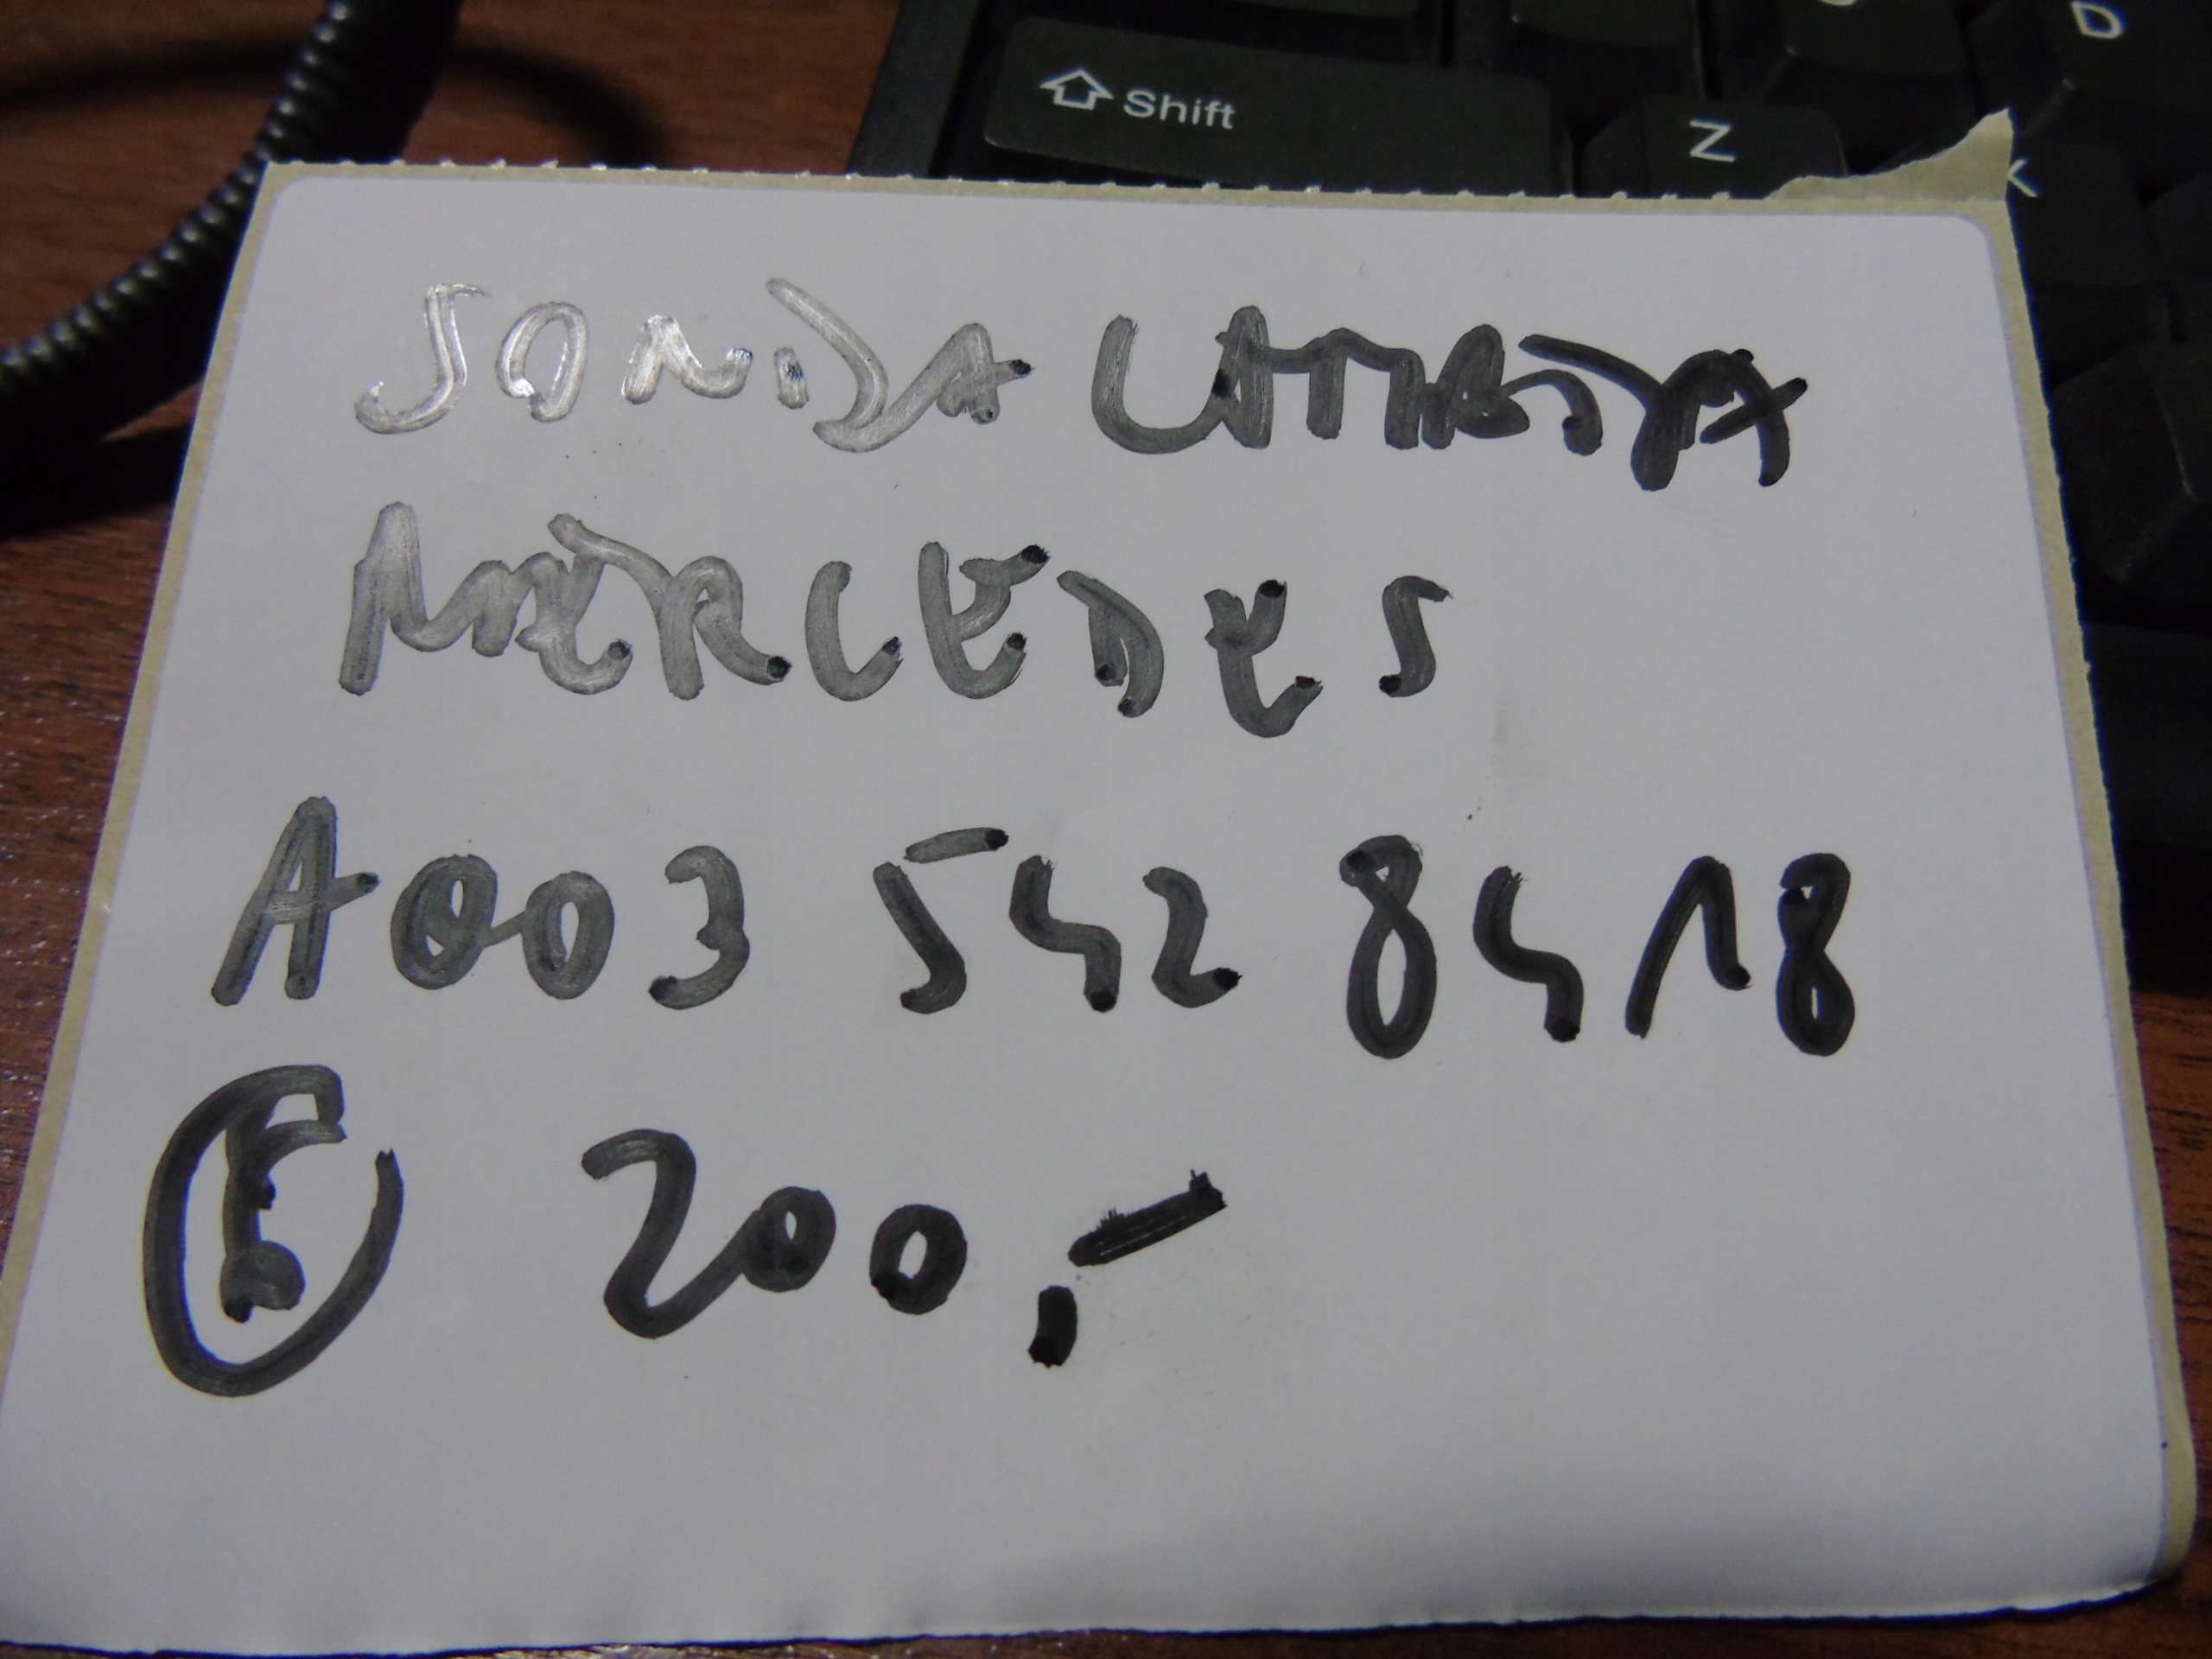 Shift
Z
D
SONDA LAMBDA
MERCEDES
A003 542 8418
200,-